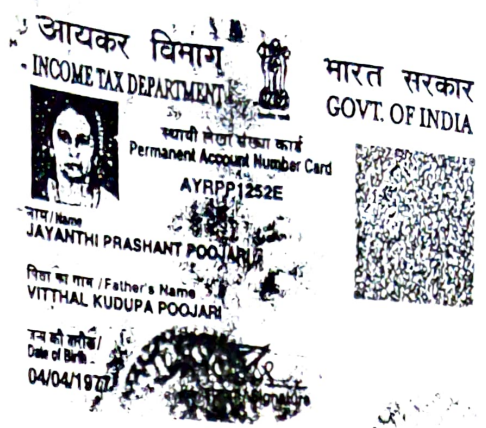 आयकर विभाग
INCOME TAX DEPARTMENT
भारत सरकार
GOVT. OF INDIA
स्थायी लेखा संख्या कार्ड
Permanent Account Number Card
AYRPP1252E
नाम / Name
JAYANTHI PRASHANT POOJARI
पिता का नाम / Father's Name
VITTHAL KUDUPA POOJARI
जन्म की तारीख /
Date of Birth
04/04/1977
Signature